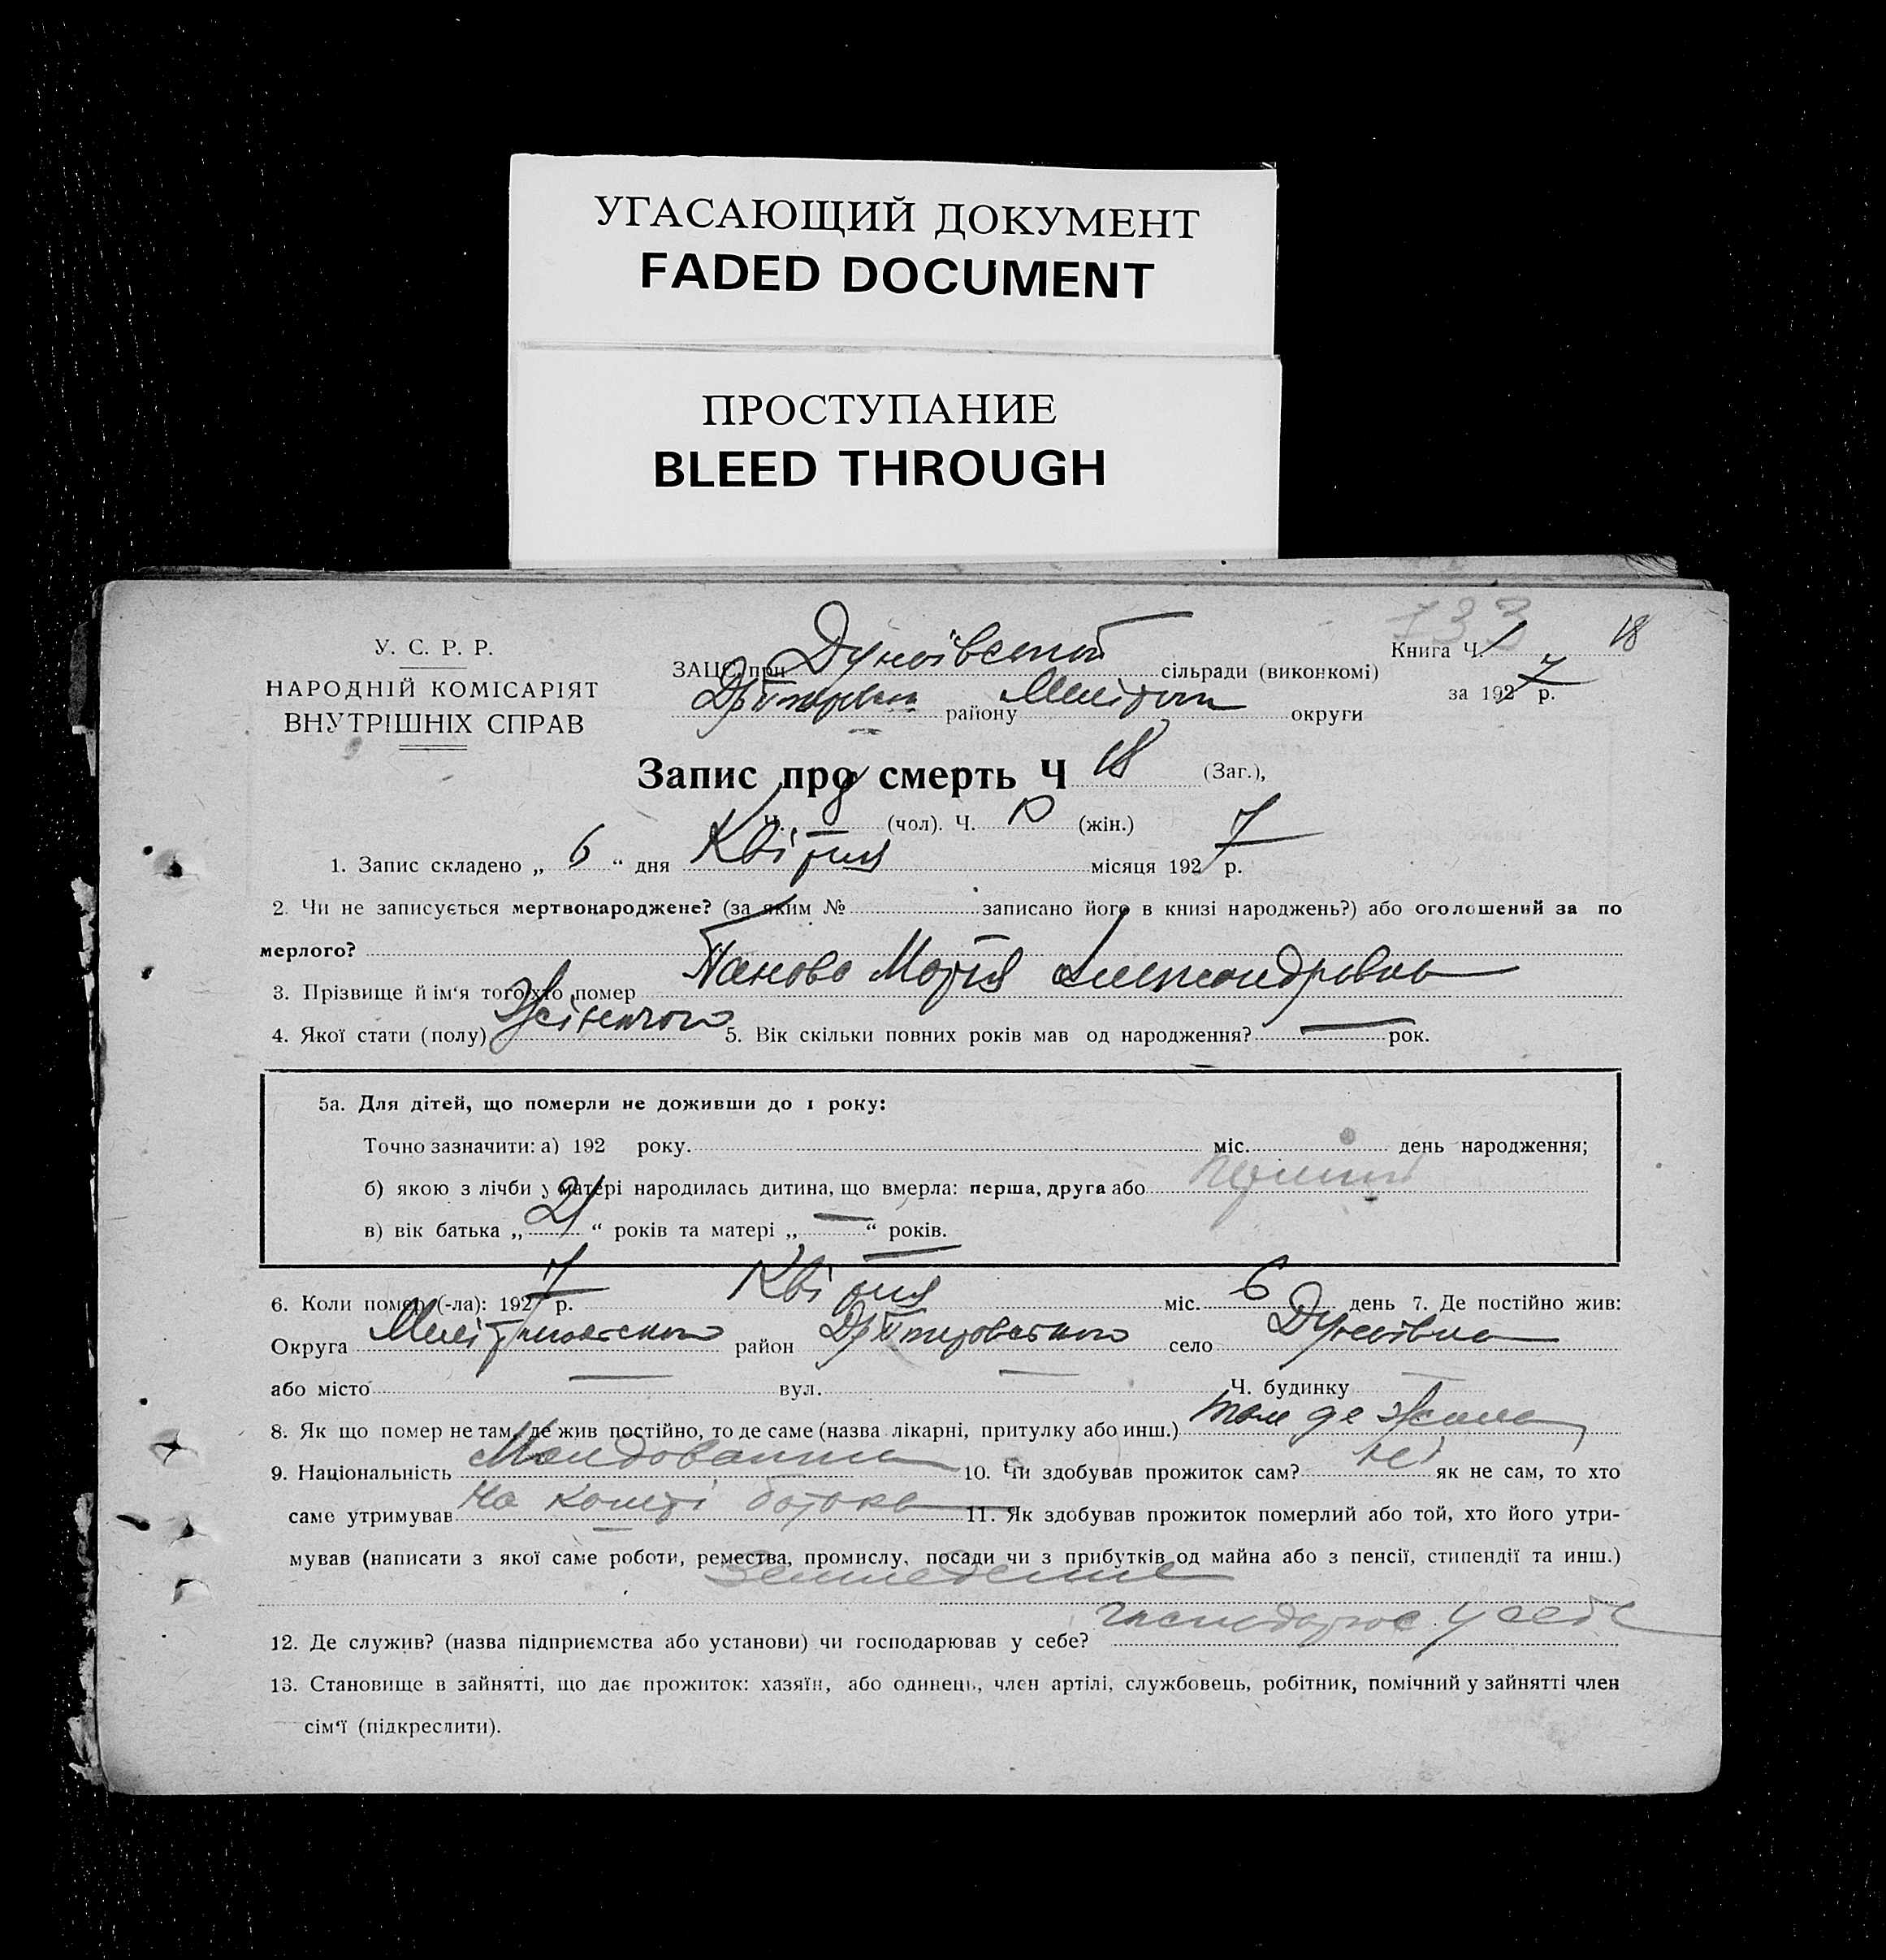 УГАСАЮЩИЙ ДОКУМЕНТ
FADED DOCUMENT
ПРОСТУПАНИЕ
BLEED THROUGH
733
У. С. Р. Р.
НАРОДНІЙ КОМІСАРІЯТ
ВНУТРІШНІХ СПРАВ
ЗАЦС при сільради (виконкомі)
району округи
Книга Ч. 1 18
за 1927 р.
Запис про смерть Ч 18 (Заг.),
Ч. 8 (чол). Ч. 10 (жін.)
1. Запис складено „ 6 “ дня Квітня місяця 1927 р.
2. Чи не записується мертвонароджене? (за яким № записано його в книзі народжень?) або оголошений за по
мерлого?
3. Прізвище й ім'я того хто помер Панова Марія Александровна
4. Якої стати (полу) Жіночого 5. Вік скільки повних років мав од народження? — рок.
5а. Для дітей, що померли не доживши до 1 року:
Точно зазначити: а) 192 року. міс. день народження;
б) якою з лічби у матері народилась дитина, що вмерла: перша, друга або
в) вік батька „ 21 “ років та матері „ — “ років.
6. Коли помер (-ла): 1927 р. Квітня міс. 6 день 7. Де постійно жив:
Округа район село Дунаївка
або місто — вул. — Ч. будинку
8. Як що помер не там, де жив постійно, то де саме (назва лікарні, притулку або инш.) там де жила
9. Національність Молдованка 10. Чи здобував прожиток сам? ні як не сам, то хто
саме утримував На кошті батька 11. Як здобував прожиток померлий або той, хто його утри-
мував (написати з якої саме роботи, ремества, промислу, посади чи з прибутків од майна або з пенсії, стипендії та инш.)
12. Де служив? (назва підприємства або установи) чи господарював у себе? господарює у себе
13. Становище в зайнятті, що дає прожиток: хазяїн, або одинець, член артілі, службовець, робітник, помічний у зайнятті член
сім'ї (підкреслити).